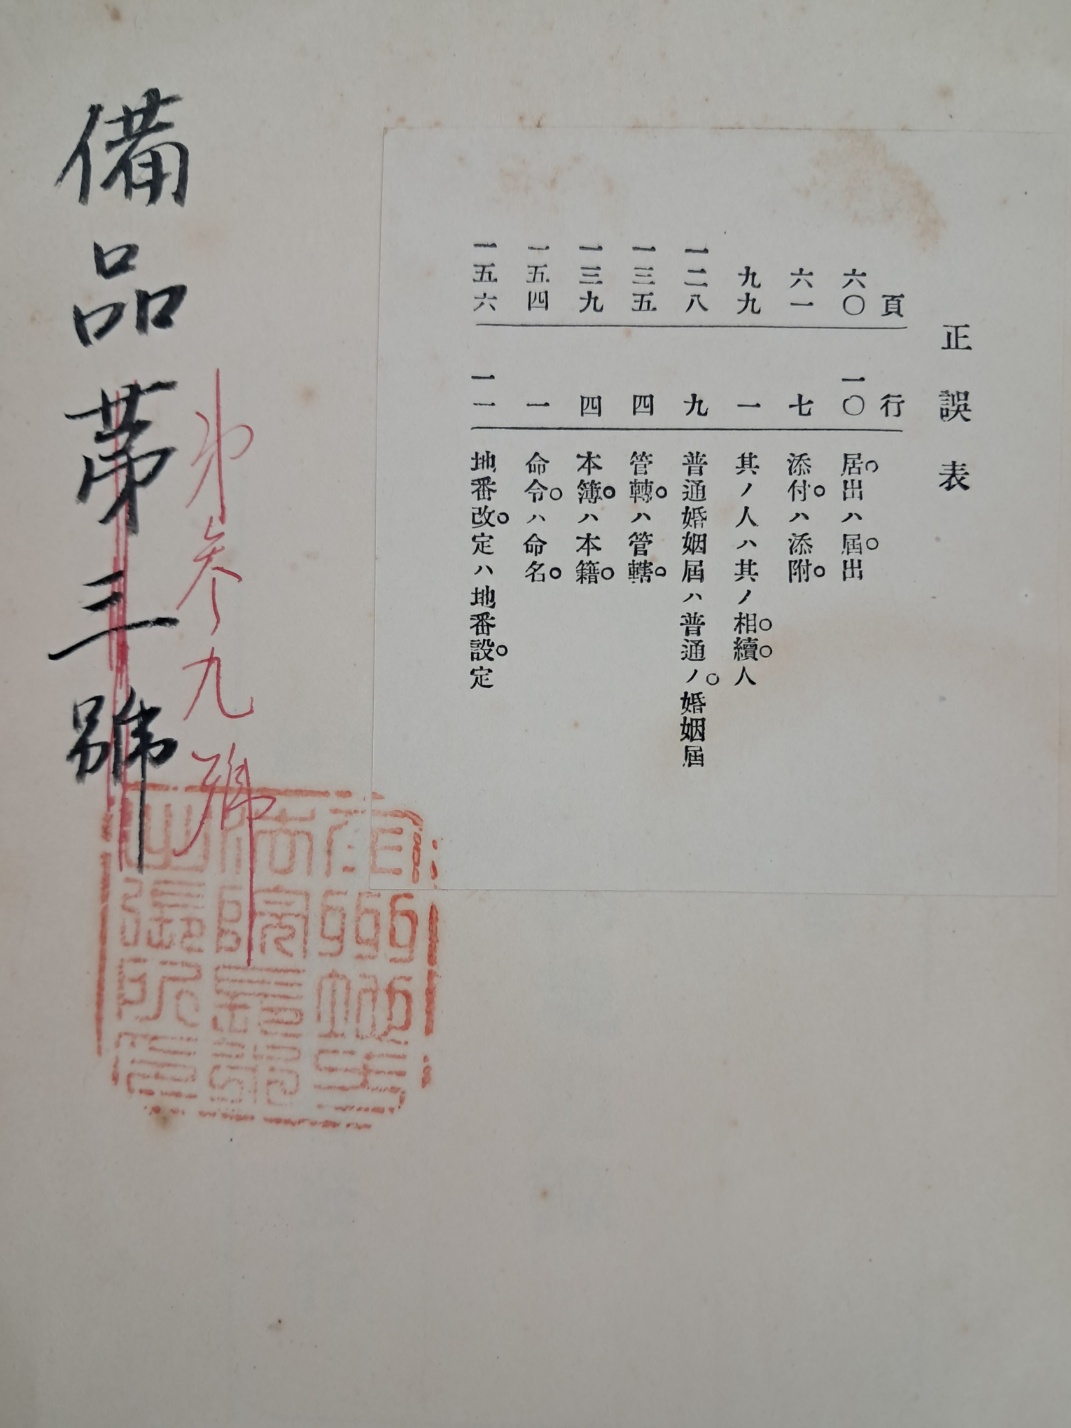 正誤表
頁 行
六〇 一〇 居出ハ届出
六一 七 添付ハ添附
九九 一 其ノ人ハ其ノ相續人
一二八 九 普通婚姻屆ハ普通ノ婚姻屆
一三五 四 管轉ハ管轄
一三九 四 本簿ハ本籍
一五四 一 命令ハ命名
一五六 一一 地番改定ハ地番設定
第参九號
備品第三號